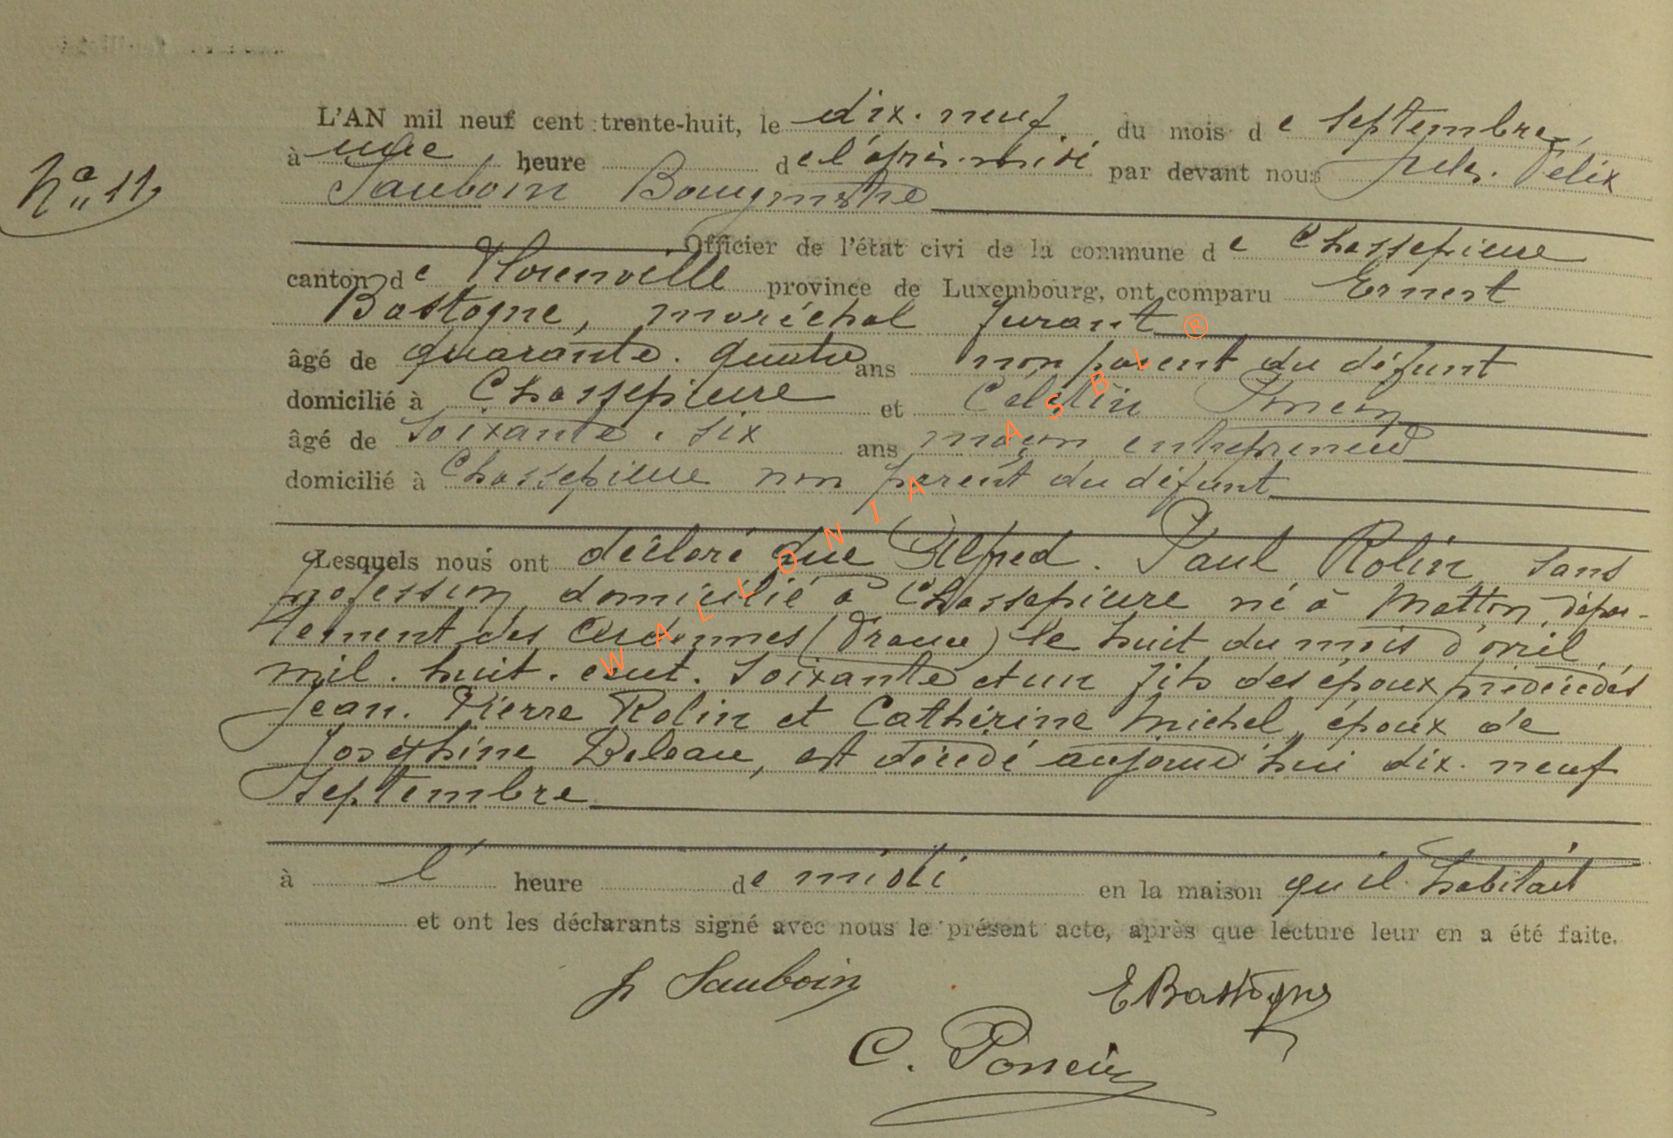 L'AN mil neuf cent trente-huit, le dix-neuf du mois de Septembre,
à une heure de l'après-midi par devant nous Jules Félix
Nº 11
Sauboin Bourgmstre
Officier de l'état civi de la commune de Chassepierre
canton de Florenville province de Luxembourg, ont comparu Ernest
Bastogne, maréchal ferrant
âgé de quarante-quatre ans non parent du défunt
domicilié à Chassepierre et Célestin Poncin
âgé de soixante-six ans maçon entrepreneur
domicilié à Chassepierre non parent du défunt
Lesquels nous ont déclaré que Alfred-Paul Rolin, sans
profession, domicilié à Chassepierre né à Matton, dépar-
tement des Ardennes (France) le huit du mois d'avril
mil-huit-cent-soixante et un fils des époux prédécédés
Jean-Pierre Rolin et Cathérine Michel, époux de
Joséphine, est décédé aujourd'hui dix-neuf
Septembre
à l' heure de midi en la maison qu'il habitait
et ont les déclarants signé avec nous le présent acte, après que lecture leur en a été faite.
Sauboin E Bastogne
C. Poncin
WALLONIA ASBL ®